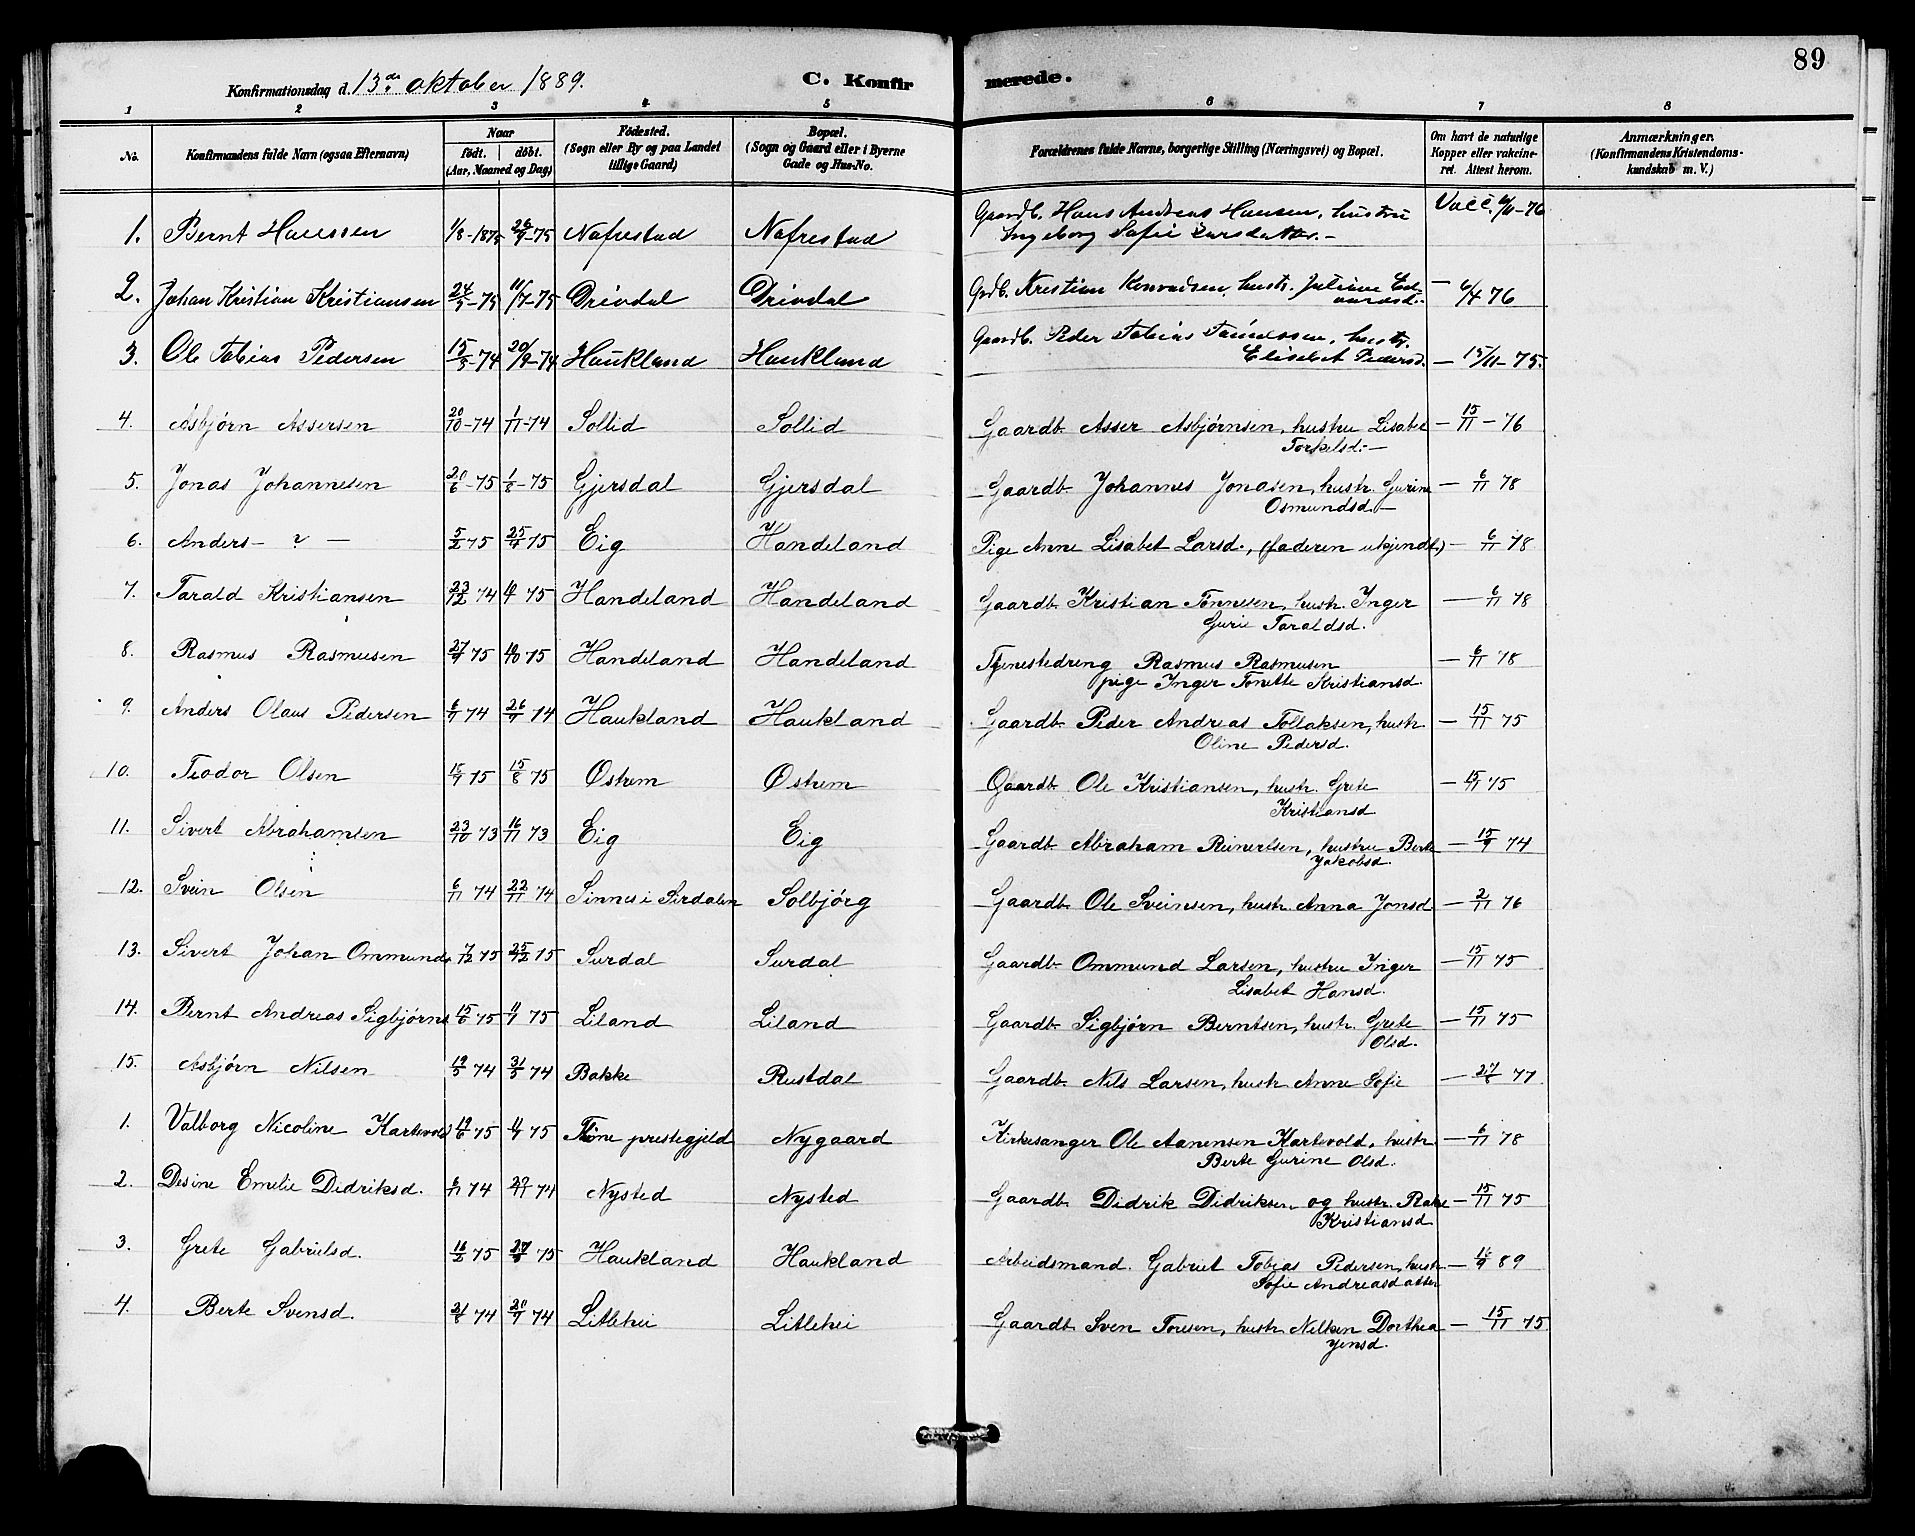 89
Konfirmationsdag d. 13de oktober 1889. C. Konfir merede.
1 2 3 4 5 6 7 8
No. Konfirmandens fulde Navn (ogsaa Efternavn) Naar født. døbt. (Aar, Maaned og Dag) Fødested. (Sogn eller By og paa Landet tillige Gaard) Bopæl. (Sogn og Gaard eller i Byerne Gade og Hus-No. Forældrenes fulde Navne, borgerlige Stilling (Næringsvei) og Bopæl. Om havt de naturlige Kopper eller vakcineret. Attest herom. Anmærkninger. (Konfirmandens Kristendomskundskab m. V.)
1. Bernt Hanssen 1/8-1875 26/9-75 Nafrestad Nafrestad Gaardb. Hans Andreas Hansen, hustru Vacc. 6/11-76
Ingeborg Sofie Larsdatter.-
2. Johan Kristian Kristiansen 24/5-75 11/7-75 Drivdal Drivdal Grdb. Kristian Konradsen, hustr. Juliane - 6/4 76
3. Ole Tobias Pedersen 15/8-74 20/9-74 Haukland Haukland Gaardb. Peder Tobias Tønnessen, hustr.
Elisabet Pedersd. - 15/11-75.
4. Asbjørn Assersen 20/10-74 1/11-74 Sollid Sollid Gaardb. Asser Asbjørnsen, hustru Lisabet - 15/11-76
Torkelsd.-
5. Jonas Johannesen 20/6-75 1/8-75 Gjersdal Gjersdal Gaardb. Johannes Jonasen, hustr. Gurine - 6/11 78
Osmundsd.-
6. Anders - ? - 5/2 75 25/4 75 Eig Handeland Pige Anne Lisabet Larsd., (faderen ukjendt.) - 6/11 78
7. Tarald Kristiansen 23/12 74 75 Handeland Handeland Gaardb. Kristian Tønnesen, hustr. Inger - 6/11 78
Gurie Taraldsd.
8. Rasmus Rasmusen 27/9 75 10/10 75 Handeland Handeland Tjenestedreng Rasmus Rasmusen - 6/11 78
pige Inger Tonette Kristiansd.
9. Anders Olaus Pedersen 6/9 74 26/9 74 Haukland Haukland Gaardb. Peder Andreas Tollaksen, hustr. - 15/11 75
Oline Pedersd.
10. Teodor Olsen 15/7 75 15/8 75 Østrem Østrem Gaardb. Ole Kristiansen, hustr. Grete - 15/11 75
Kristiansd
11. Sivert Abrahamsen 23/10 73 16/11 73 Eig Eig Gaardb. Abraham Reinertsen, hustru Berte - 15/9 74
Jakobsd.
12. Svein Olsen 6/11 74 22/11 74 Sinnes i Sirdalen Solbjørg Gaardb. Ole Sveinsen, hustr. Anna Jonsd. - 2/11 76
13. Sivert Johan Ommunds. 7/12 75 25/12 75 Surdal Surdal Gaardb. Ommund Larsen, hustru Inger - 15/11 75
Lisabet Hansd.
14. Bernt Andreas Sigbjørns. 15/6 75 11/7 75 Liland Liland Gaardb. Sigbjørn Berntsen, hustr. Grete - 15/11 75
Olsd.
15. Asbjørn Nilsen 19/5 74 31/5 74 Bakke Rustdal Gaardb. Nils Larsen, hustr. Anne Sofie - 77
1. Valborg Nicoline Kartevold 19/6 75 11/7 75 prestegjeld Nygaard Kirkesanger Ole Aanensen Kartevold, hustr. - 6/11 78
Berte Gurine Olsd.
2. Desine Emelie Didriksd. 6/11 74 29/11 74 Nysted Nysted Gaardb. Didrik Didriksen og hustr. Rake - 15/11 75
Kristiansd
3. Grete Gabrielsd. 16/2 75 75 Haukland Haukland Arbeidsmand. Gabriel Tobias Pedersen, hustr. - 89
Sofie Andreasdatter
4. Berte Svensd. 74 20/9 74 Litlehei Litlehei Gaardb. Sven Toresen, hustr. Nilken Dorthea - 15/11 75.
Jensd.